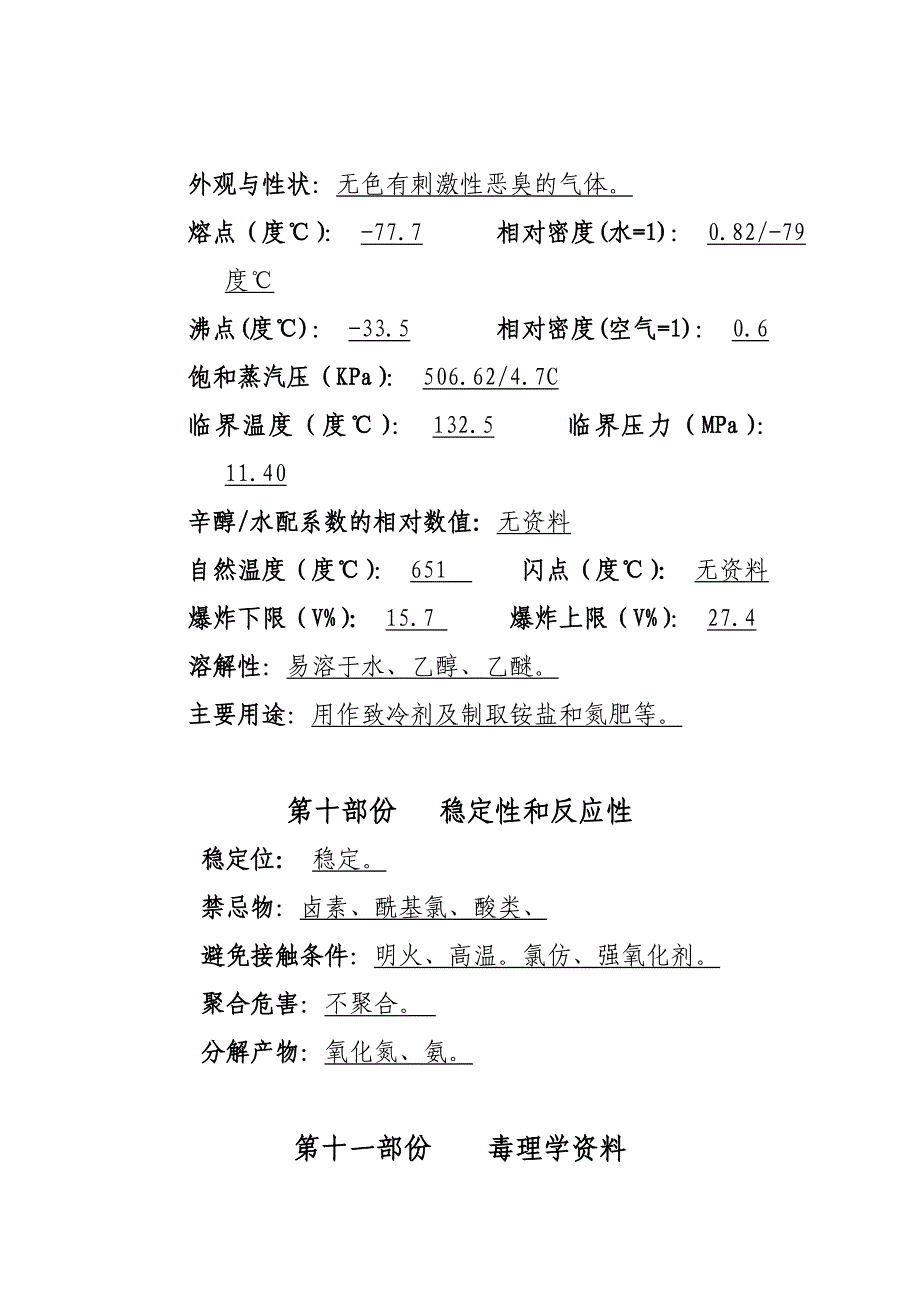 外观与性状: 无色有刺激性恶臭的气体。
熔点（度℃): -77.7 相对密度(水=1): 0.82/-79
度℃
沸点(度℃): -33.5 相对密度(空气=1): 0.6
饱和蒸汽压（KPa): 506.62/4.7C
临界温度（度℃): 132.5 临界压力（MPa):
11.40
辛醇/水配系数的相对数值: 无资料
自然温度（度℃): 651 闪点（度℃): 无资料
爆炸下限（V%): 15.7 爆炸上限（V%): 27.4
溶解性: 易溶于水、乙醇、乙醚。
主要用途: 用作致冷剂及制取铵盐和氮肥等。
第十部份 稳定性和反应性
稳定位: 稳定。
禁忌物: 卤素、酰基氯、酸类、
避免接触条件: 明火、高温。氯仿、强氧化剂。
聚合危害: 不聚合。
分解产物: 氧化氮、氨。
第十一部份 毒理学资料